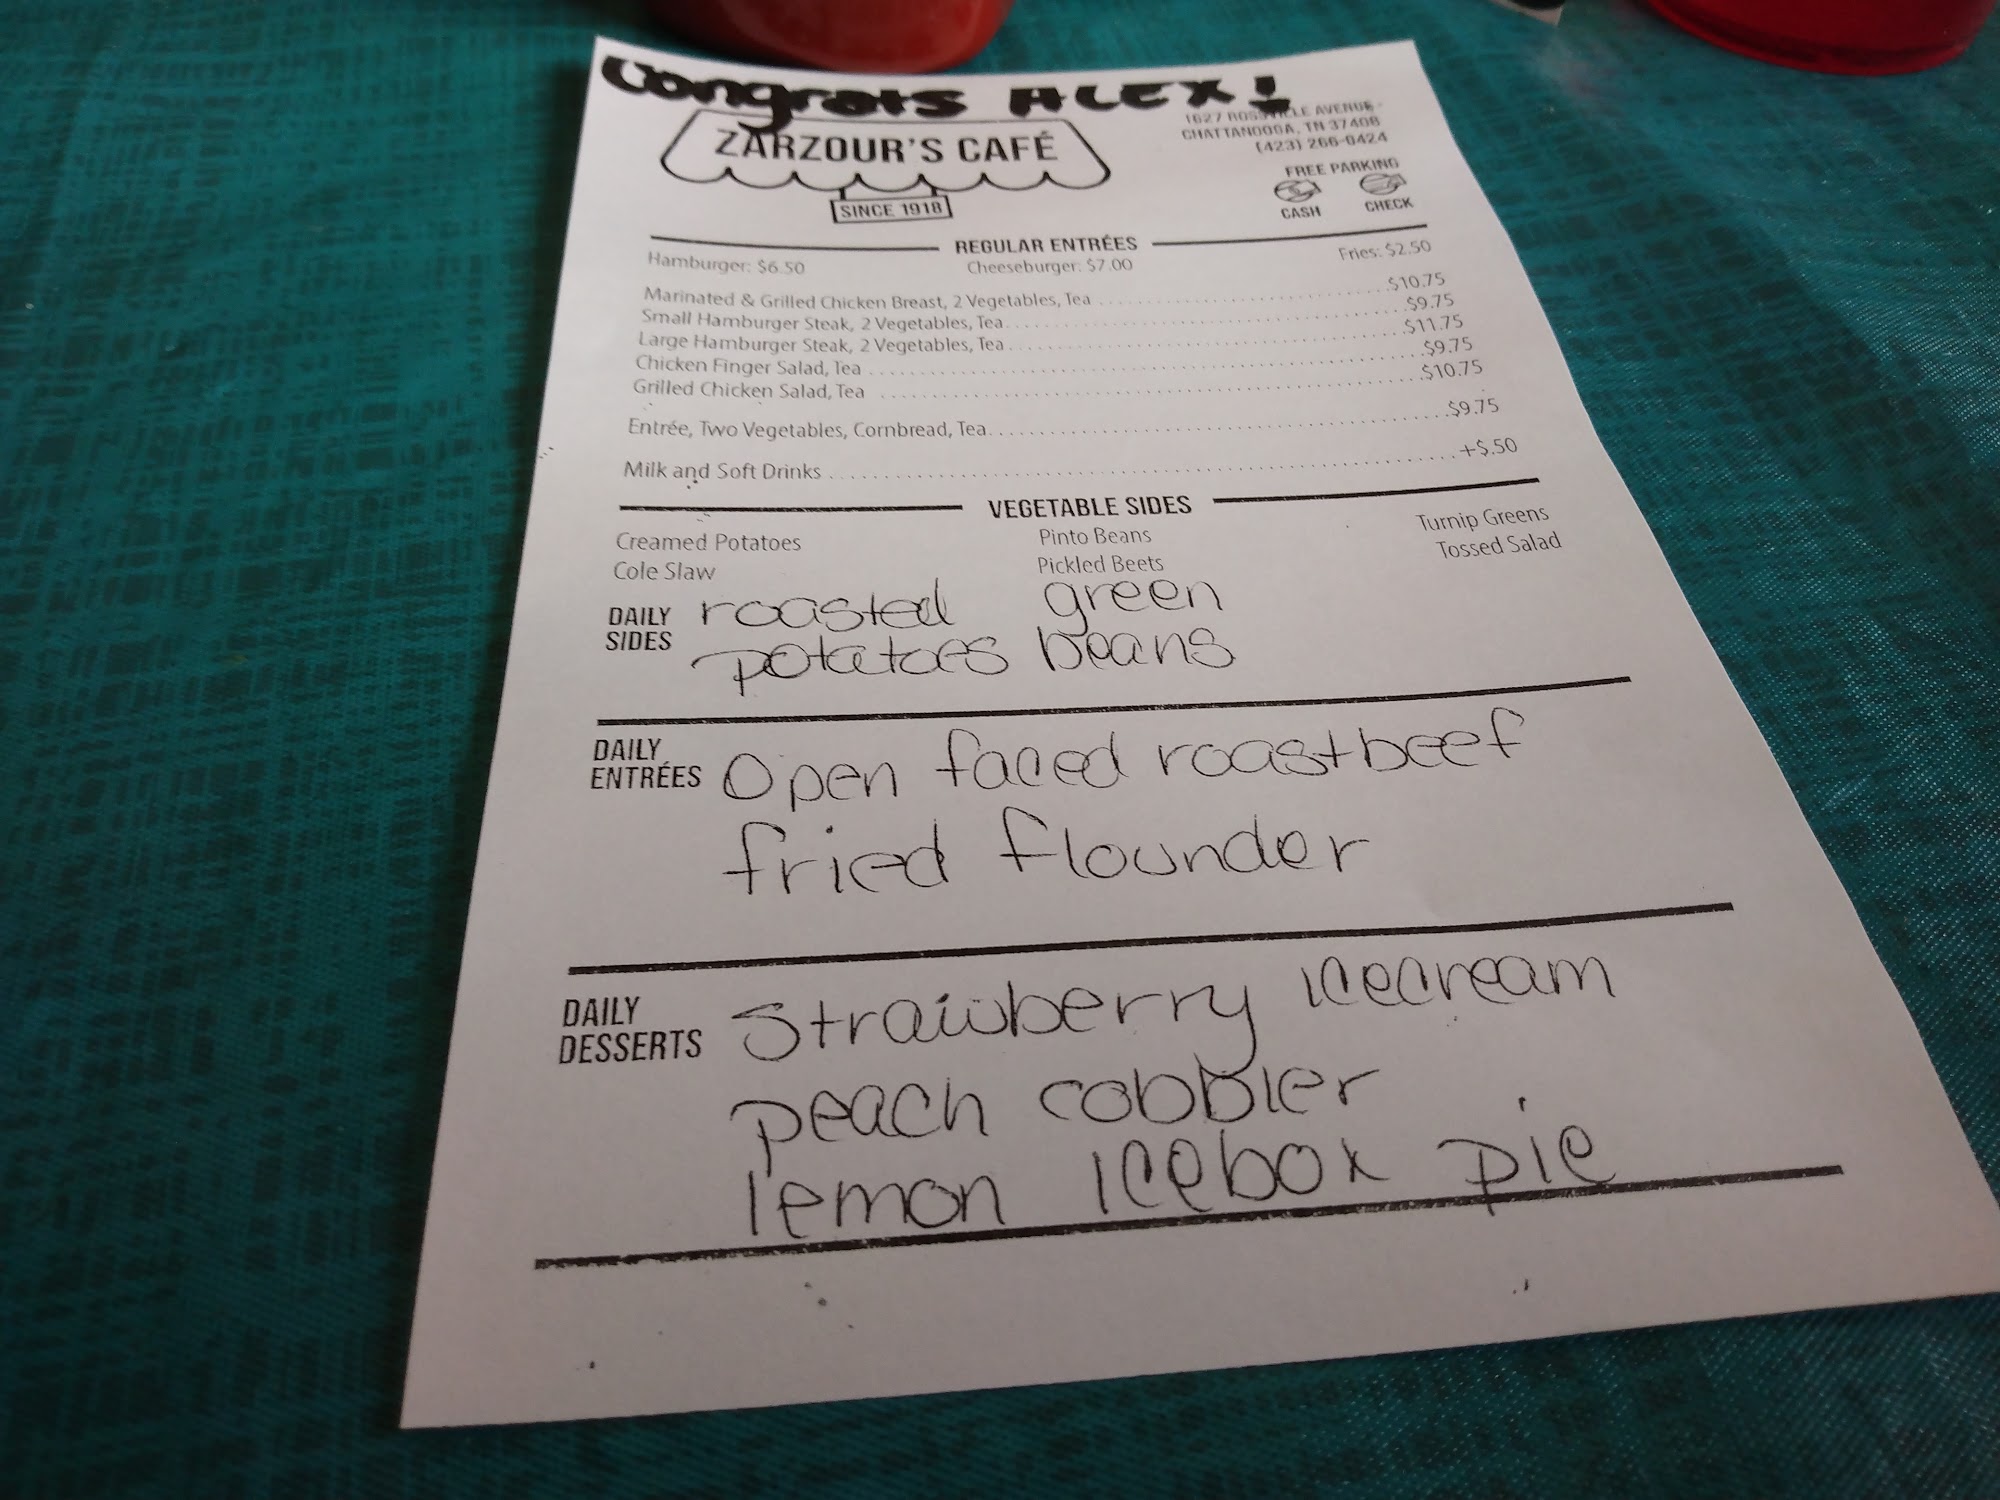 Congrats ALEX!
ZARZOUR'S CAFÉ
SINCE 1918
1627 ROSSVILLE AVENUE
CHATTANOOGA, TN 37408
(423) 266-0424
FREE PARKING
CASH CHECK
REGULAR ENTRÉES
Hamburger: $6.50 Cheeseburger: $7.00 Fries: $2.50
Marinated & Grilled Chicken Breast, 2 Vegetables, Tea $10.75
Small Hamburger Steak, 2 Vegetables, Tea $9.75
Large Hamburger Steak, 2 Vegetables, Tea $11.75
Chicken Finger Salad, Tea $9.75
Grilled Chicken Salad, Tea $10.75
Entrée, Two Vegetables, Cornbread, Tea $9.75
Milk and Soft Drinks +$.50
VEGETABLE SIDES
Creamed Potatoes Pinto Beans Turnip Greens
Cole Slaw Pickled Beets Tossed Salad
DAILY SIDES
roasted green
potatoes beans
DAILY ENTRÉES
Open faced roastbeef
fried flounder
DAILY DESSERTS
Strawberry icecream
peach cobbler
lemon icebox pie